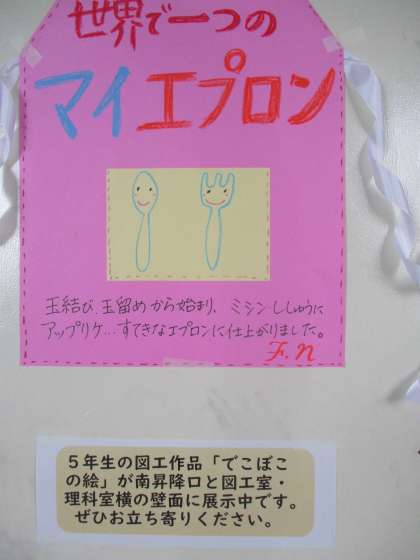 世界で一つの
マイエプロン
玉結び、玉留めから始まり、ミシンししゅうに
アップリケ...すてきなエプロンに仕上がりました。
F.n
５年生の図工作品「でこぼこ
の絵」が南昇降口と図工室・
理科室横の壁面に展示中です。
ぜひお立ち寄りください。